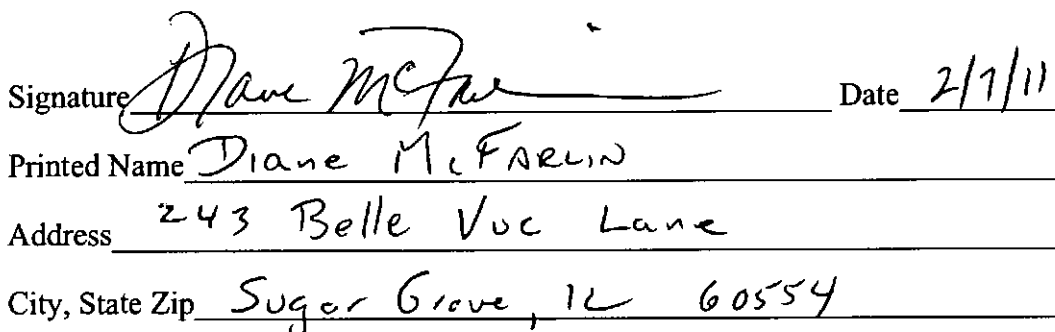 Signature Diane McFarlin Date 2/7/11
Printed Name Diane McFARLIN
Address 243 Belle Vue Lane
City, State Zip Sugar Grove, IL 60554